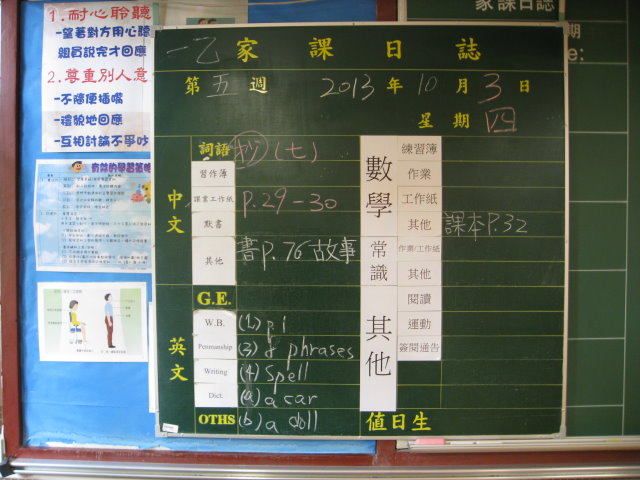 1.耐心聆聽
-望著對方用心聽
組員說完才回應
2.尊重別人意
-不隨便插嘴
-禮貌地回應
-互相討論不爭吵
家課日誌
一乙家課日誌
第五週 2013年10月3日
星期四
中文
詞語 抄(七)
習作簿
課業工作紙 P.29-30
默書
其他 書P.76故事
英文
G.E.
W.B. (1) p i
Penmanship (3) 8 phrases
Writing (4) Spell
Dict. (a) a car
OTHS (b) a doll
數學
練習簿
作業
工作紙
其他 課本P.32
常識
作業/工作紙
其他
其他
閱讀
運動
簽閱通告
值日生
期
e: